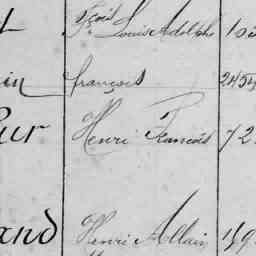 Fçois Louis Adolphe 10
in françois 2454
ur Henri François 72
and Henri Allain 19